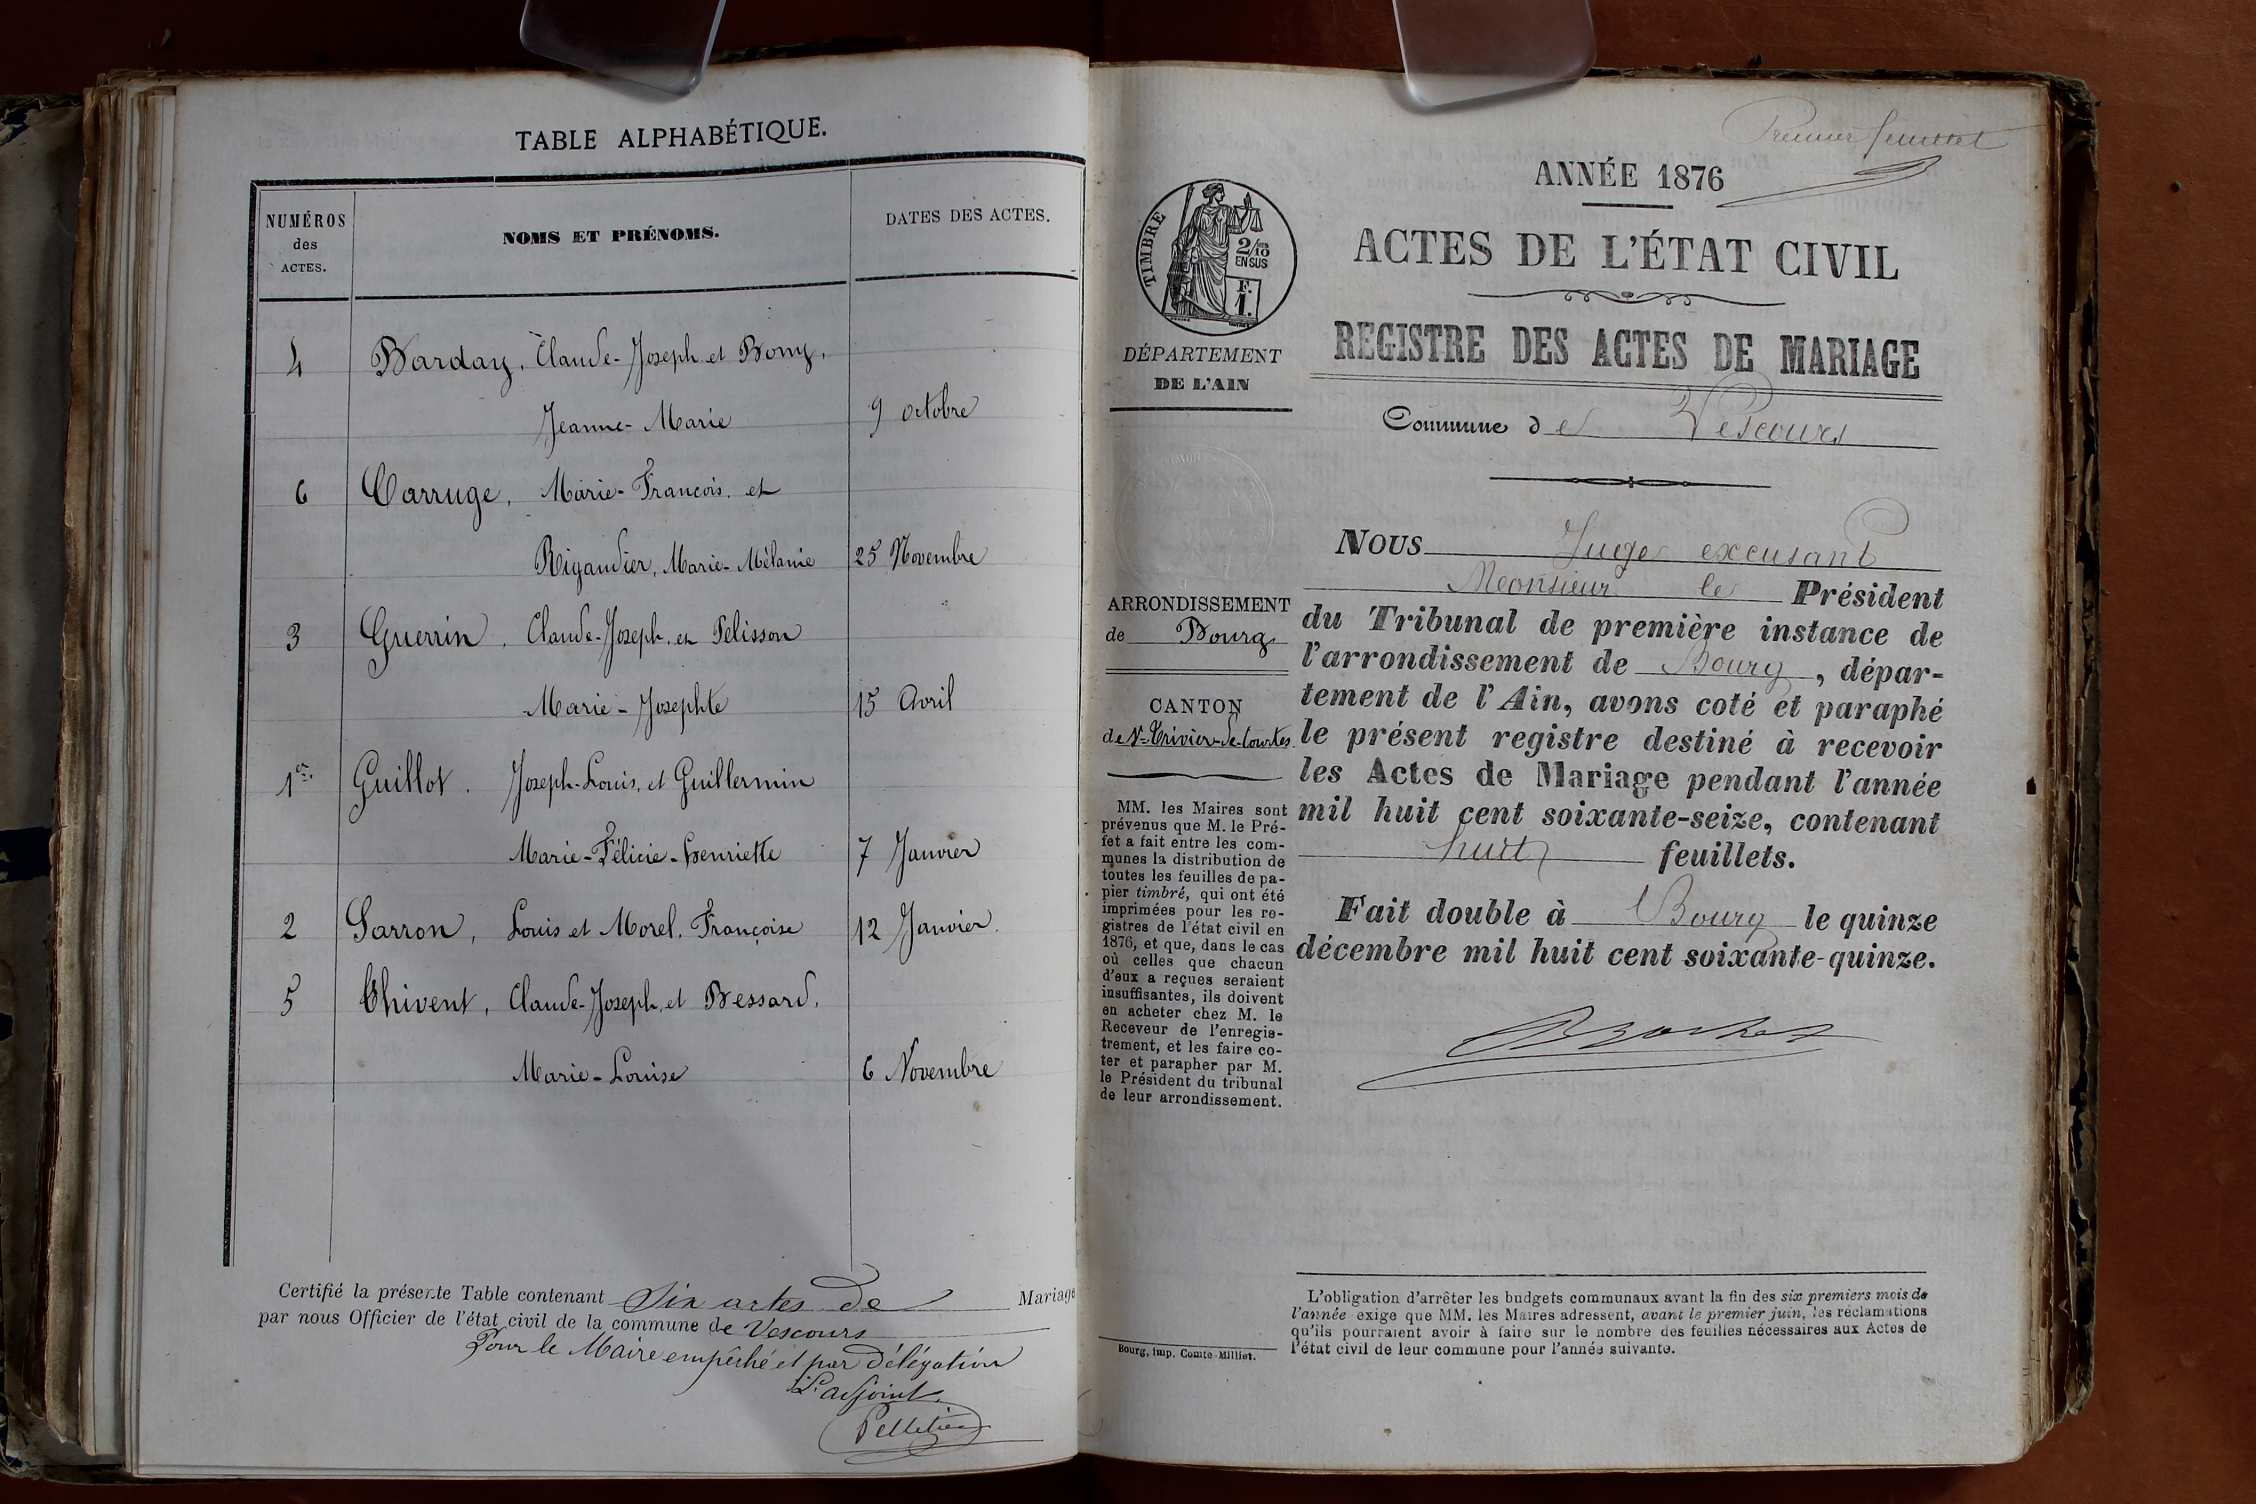 TABLE ALPHABÉTIQUE.
NUMÉROS
des
ACTES.
NOMS ET PRÉNOMS.
DATES DES ACTES.
4 Barday, Claude-Joseph et Bony,
Jeanne-Marie 9 octobre
6 Carruge, Marie-François, et
Rigaudier, Marie-Mélanie 25 Novembre
3 Guerrin, Claude-Joseph, et Pelisson
Marie-Josephte 15 Avril
1er Guillot, Joseph-Louis, et Guillermin
Marie-Félicie-Henriette 7 Janvier
2 Sarron, Louis et Morel, Françoise 12 Janvier.
5 Thivent, Claude-Joseph, et Bessard,
Marie-Louise 6 Novembre
Certifié la présente Table contenant Six actes de Mariage
par nous Officier de l'état civil de la commune de Vescours
Pour le Maire empêché et par délégation
L'adjoint,
Pelletier
Premier feuillet
ANNÉE 1876
TIMBRE
2/10
EN SUS
F.
1.
ACTES DE L'ÉTAT CIVIL
REGISTRE DES ACTES DE MARIAGE
DÉPARTEMENT
DE L'AIN
Commune de Vescours
ARRONDISSEMENT
de Bourg
CANTON
de St-Trivier-de-Courtes.
MM. les Maires sont
prévenus que M. le Pré-
fet a fait entre les com-
munes la distribution de
toutes les feuilles de pa-
pier timbré, qui ont été
imprimées pour les re-
gistres de l'état civil en
1876, et que, dans le cas
où celles que chacun
d'eux a reçues seraient
insuffisantes, ils doivent
en acheter chez M. le
Receveur de l'enregis-
trement, et les faire co-
ter et parapher par M.
le Président du tribunal
de leur arrondissement.
Bourg, imp. Comte-Milliet.
NOUS Juge excusant
Monsieur le Président
du Tribunal de première instance de
l'arrondissement de Bourg, dépar-
tement de l'Ain, avons coté et paraphé
le présent registre destiné à recevoir
les Actes de Mariage pendant l'année
mil huit cent soixante-seize, contenant
huit feuillets.
Fait double à Bourg le quinze
décembre mil huit cent soixante-quinze.
L'obligation d'arrêter les budgets communaux avant la fin des six premiers mois de
l'année exige que MM. les Maires adressent, avant le premier juin, les réclamations
qu'ils pourraient avoir à faire sur le nombre des feuilles nécessaires aux Actes de
l'état civil de leur commune pour l'année suivante.